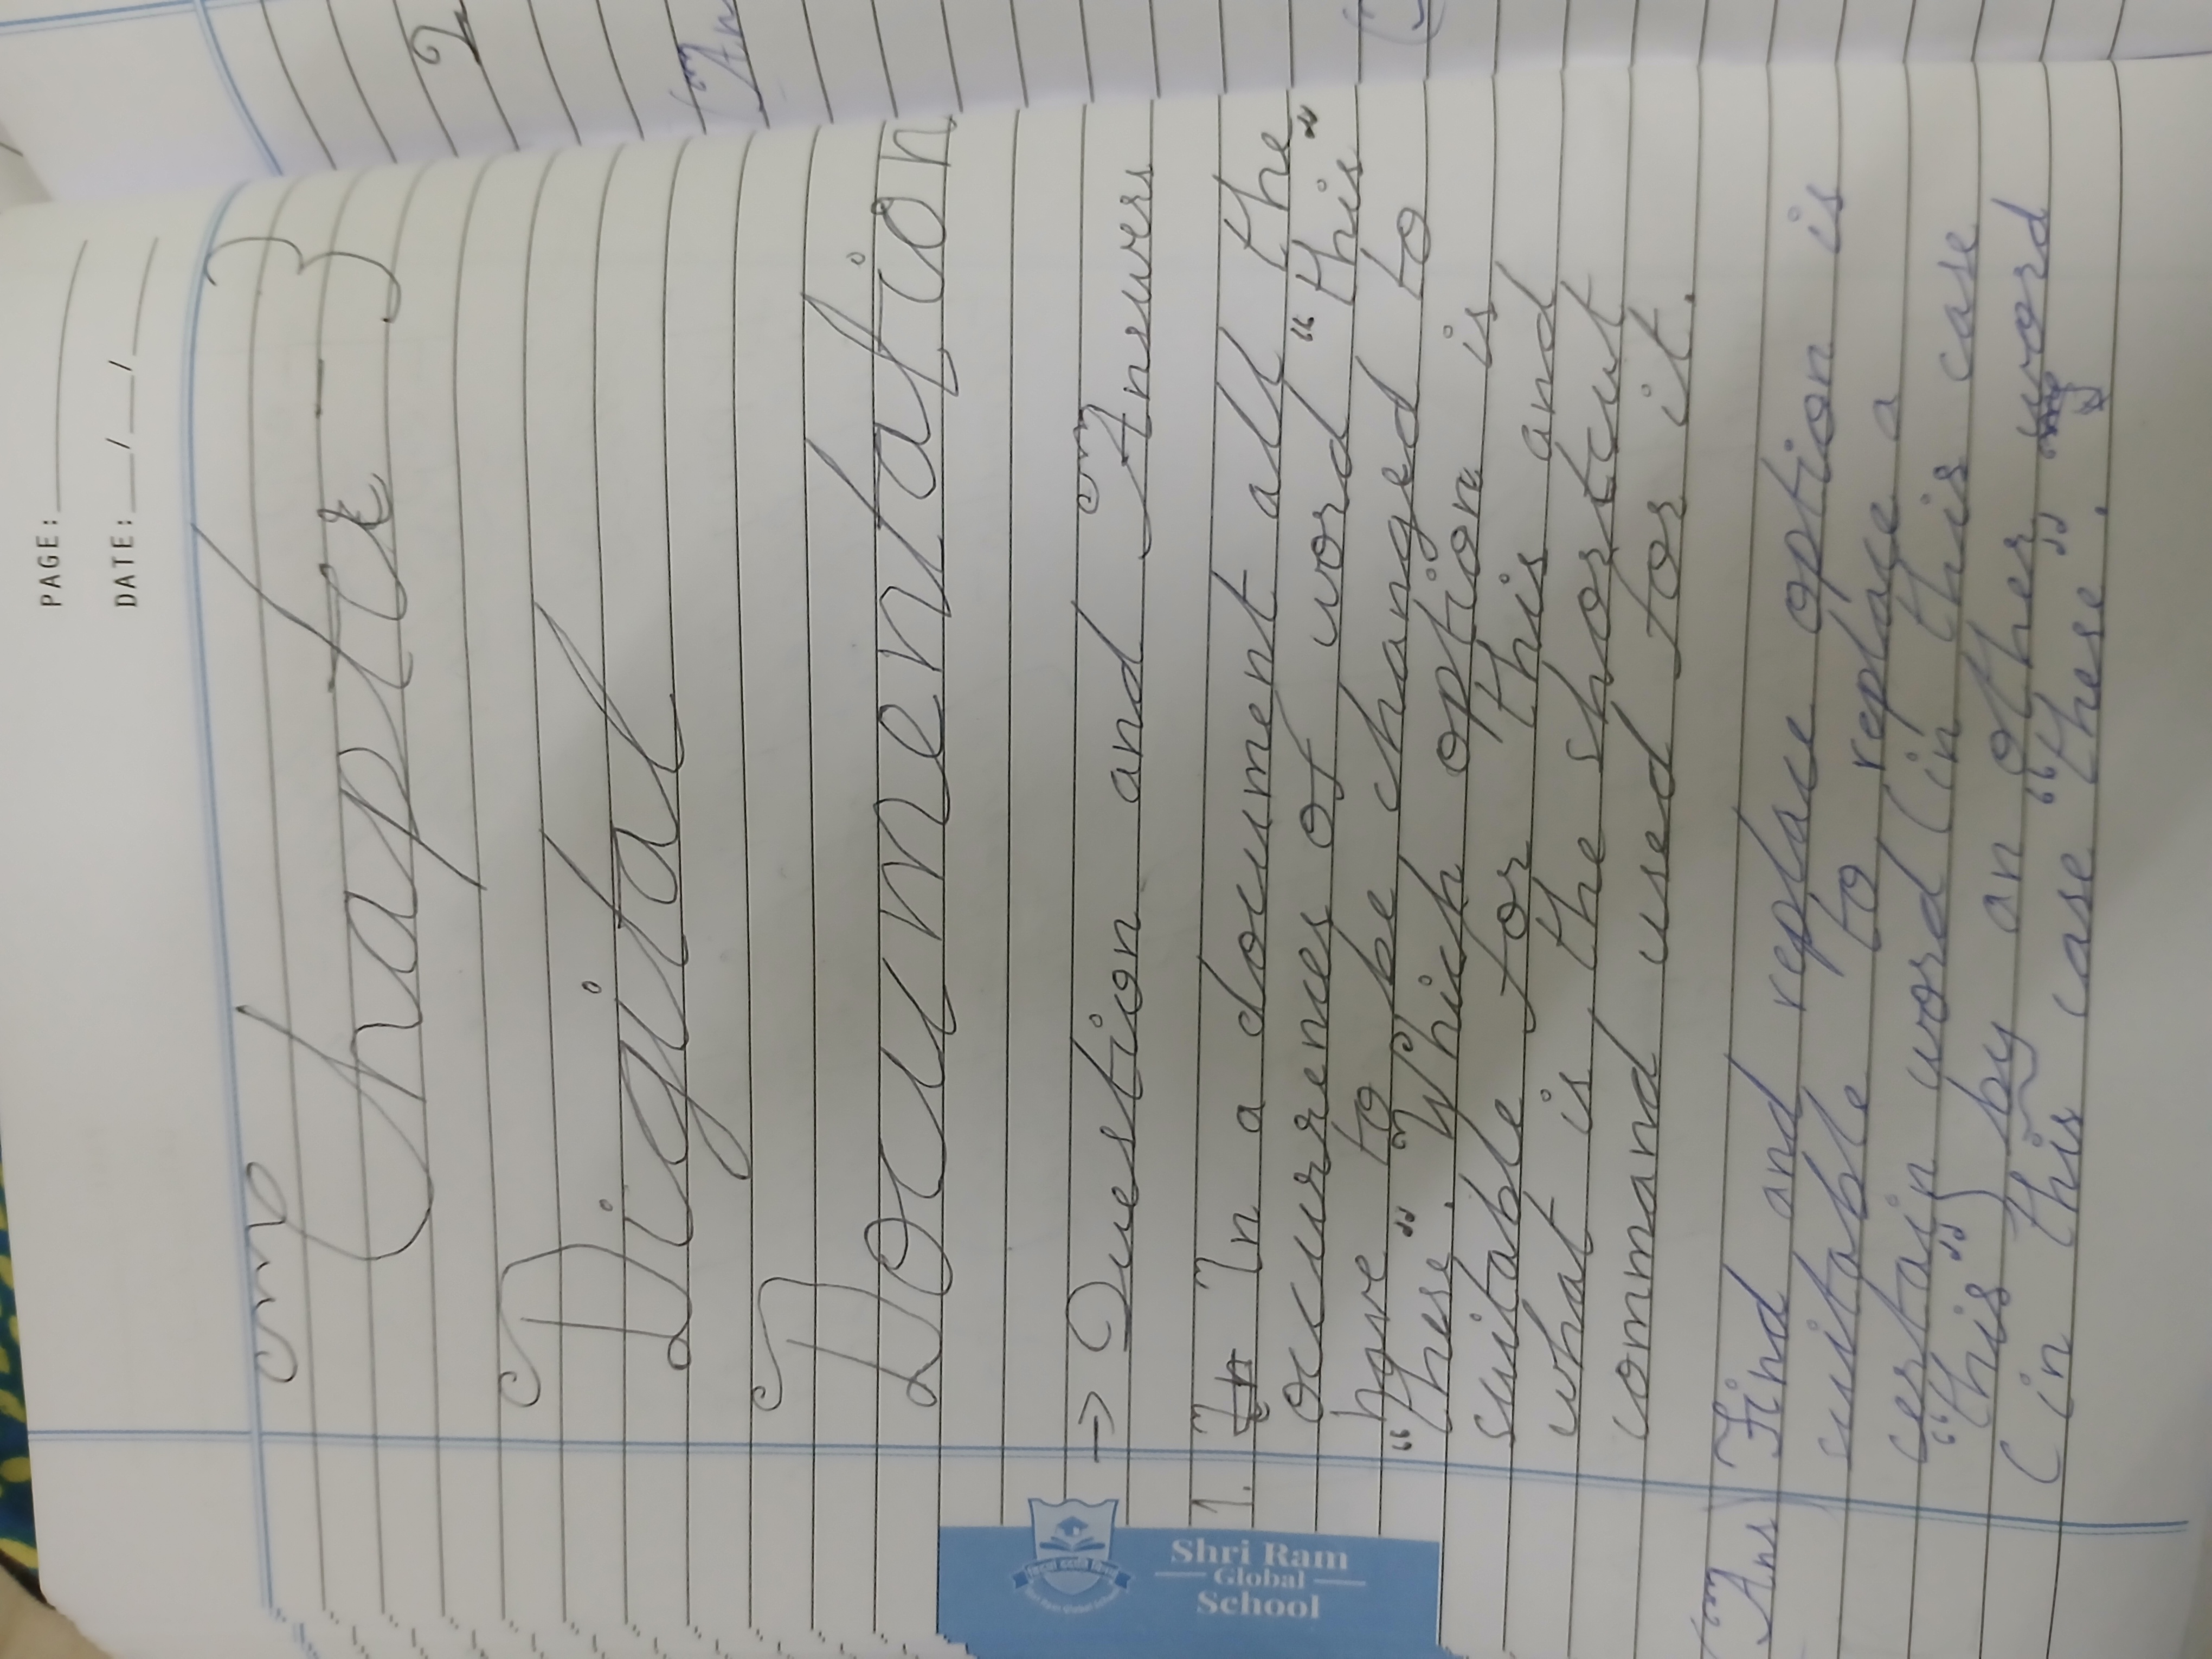 PAGE:
DATE: / /
Chapter - 3
Digital
Documentation
→ Question and Answers
1. In In a document all the
occurrences of word “this”
have to be changed to
“these”. Which option is
suitable for this and
what is the shortcut
command used for it.
Ans) Find and replace option is
suitable to replace a
certain word (in this case
“this”) by an other word
(in this case “these”.
Shri Ram
Global
School
2
An